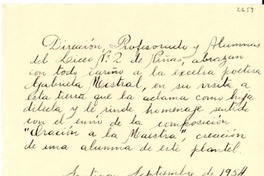 2659
Dirección, Profesorado y Alumnas
del Liceo Nº 2 de Niñas, abrazan
con todo cariño a la excelsa poetisa
Gabriela Mistral, en su visita a
esta tierra que la aclama como hija
dilecta y le rinde homenaje sentido
con el envío de la composición
"Oración a la Maestra", creación
de una alumna de este plantel.
Santiago, Septiembre de 1954